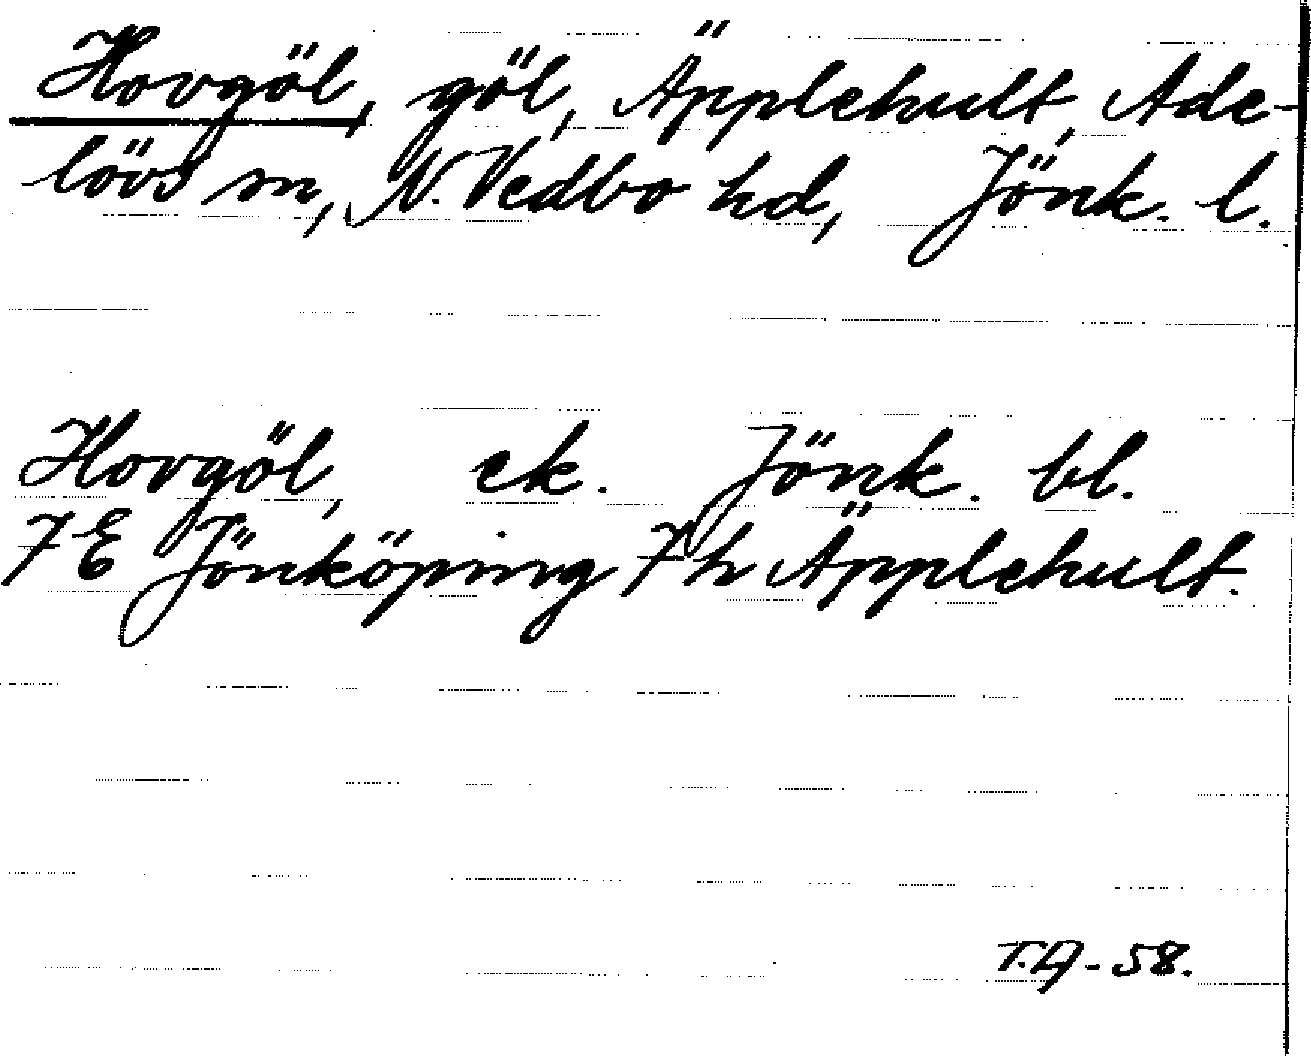 Hovgöl, göl, Äpplehult, Ade-
lövs sn, N. Vedbo hd, Jönk. l.
Hovgöl, ek. Jönk. bl.
7E Jönköping 7h Äpplehult.
T.A-58.